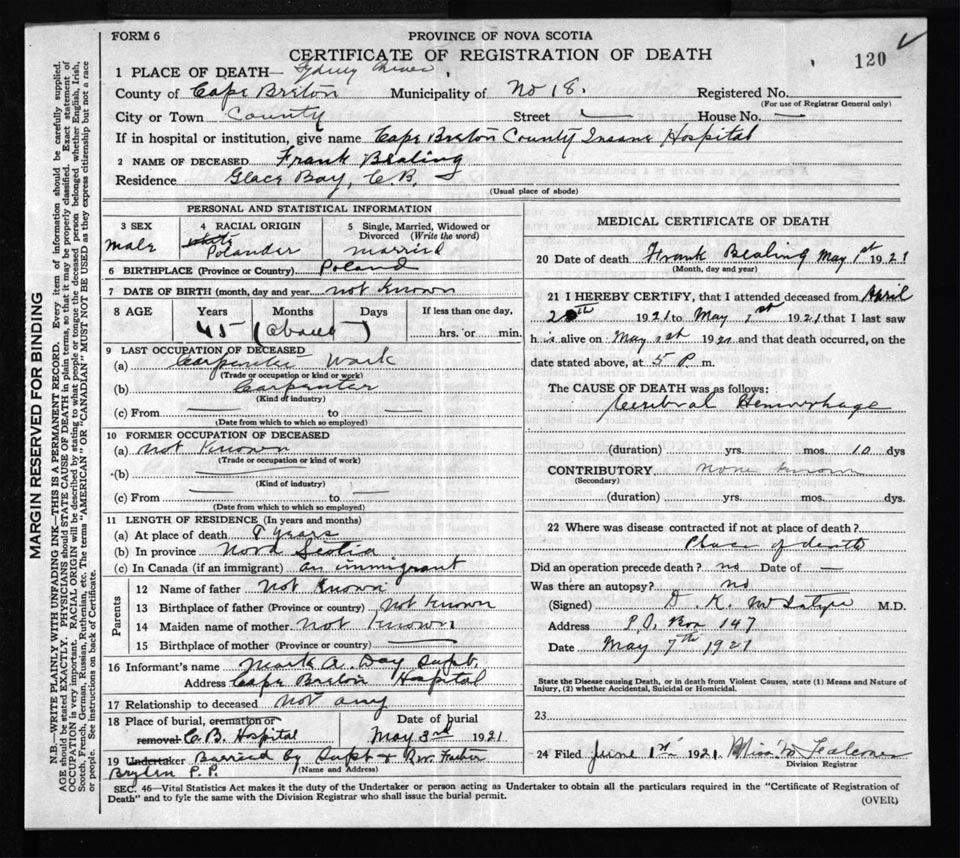 FORM 6
PROVINCE OF NOVA SCOTIA
CERTIFICATE OF REGISTRATION OF DEATH
120
1 PLACE OF DEATH— Sydney River
County of Cape Breton Municipality of No 18. Registered No.
(For use of Registrar General only)
City or Town County Street — House No. —
If in hospital or institution, give name Cape Breton County Insane Hospital
2 NAME OF DECEASED Frank Bealing
Residence Glace Bay, C.B.
(Usual place of abode)
PERSONAL AND STATISTICAL INFORMATION
3 SEX
Male
4 RACIAL ORIGIN
Polander
5 Single, Married, Widowed or Divorced (Write the word)
married
6 BIRTHPLACE (Province or Country) Poland
7 DATE OF BIRTH (month, day and year) not known
8 AGE Years Months Days If less than one day,
45 (about) hrs. or min.
9 LAST OCCUPATION OF DECEASED
(a) Carpenter Work
(Trade or occupation or kind of work)
(b) Carpenter
(Kind of industry)
(c) From — to —
(Date from which to which so employed)
10 FORMER OCCUPATION OF DECEASED
(a) not known
(Trade or occupation or kind of work)
(b) —
(Kind of industry)
(c) From — to —
(Date from which to which so employed)
11 LENGTH OF RESIDENCE (In years and months)
(a) At place of death 8 years
(b) In province Nova Scotia
(c) In Canada (if an immigrant) an immigrant
Parents
12 Name of father Not Known
13 Birthplace of father (Province or country) Not known
14 Maiden name of mother Not Known
15 Birthplace of mother (Province or country) —
16 Informant's name Mark A. Day Supt.
Address Cape Breton Hospital
17 Relationship to deceased Not any
18 Place of burial, cremation or removal C.B. Hospital
Date of burial
May 3rd 1921
19 Undertaker Burried by Supt & Rev. Father
(Name and Address)
P. P.
MEDICAL CERTIFICATE OF DEATH
20 Date of death Frank Bealing May 1st 1921
(Month, day and year)
21 I HEREBY CERTIFY, that I attended deceased from April
20th 1921 to May 1st 1921 that I last saw
h alive on May 1st 1921 and that death occurred, on the
date stated above, at 5 P. m.
The CAUSE OF DEATH was as follows:
Cerebral Hemorrhage
(duration) yrs. mos. 10 dys
CONTRIBUTORY none known
(Secondary)
(duration) yrs. mos. dys.
22 Where was disease contracted if not at place of death?
Place of death
Did an operation precede death? no Date of —
Was there an autopsy? no
(Signed) D. K. McIntyre M.D.
Address P.O. Box 147
Date May 7th 1921
State the Disease causing Death, or in death from Violent Causes, state (1) Means and Nature of
Injury, (2) whether Accidental, Suicidal or Homicidal.
23
24 Filed June 1st 1921 Miss Falconer
Division Registrar
SEC. 46—Vital Statistics Act makes it the duty of the Undertaker or person acting as Undertaker to obtain all the particulars required in the "Certificate of Registration of
Death" and to fyle the same with the Division Registrar who shall issue the burial permit.
(OVER)
MARGIN RESERVED FOR BINDING
N.B.—WRITE PLAINLY WITH UNFADING INK—THIS IS A PERMANENT RECORD. Every item of information should be carefully supplied.
AGE should be stated EXACTLY. PHYSICIANS should STATE CAUSE OF DEATH in plain terms, so that it may be properly classified. Exact statement of
OCCUPATION is very important. RACIAL ORIGIN will be described by stating to what people or tongue the deceased person belonged whether English, Irish,
Scotch, French, German, Russian, Ruthenian, etc. The terms "AMERICAN" OR "CANADIAN" MUST NOT BE USED as they express citizenship but not a race
or people. See instructions on back of Certificate.